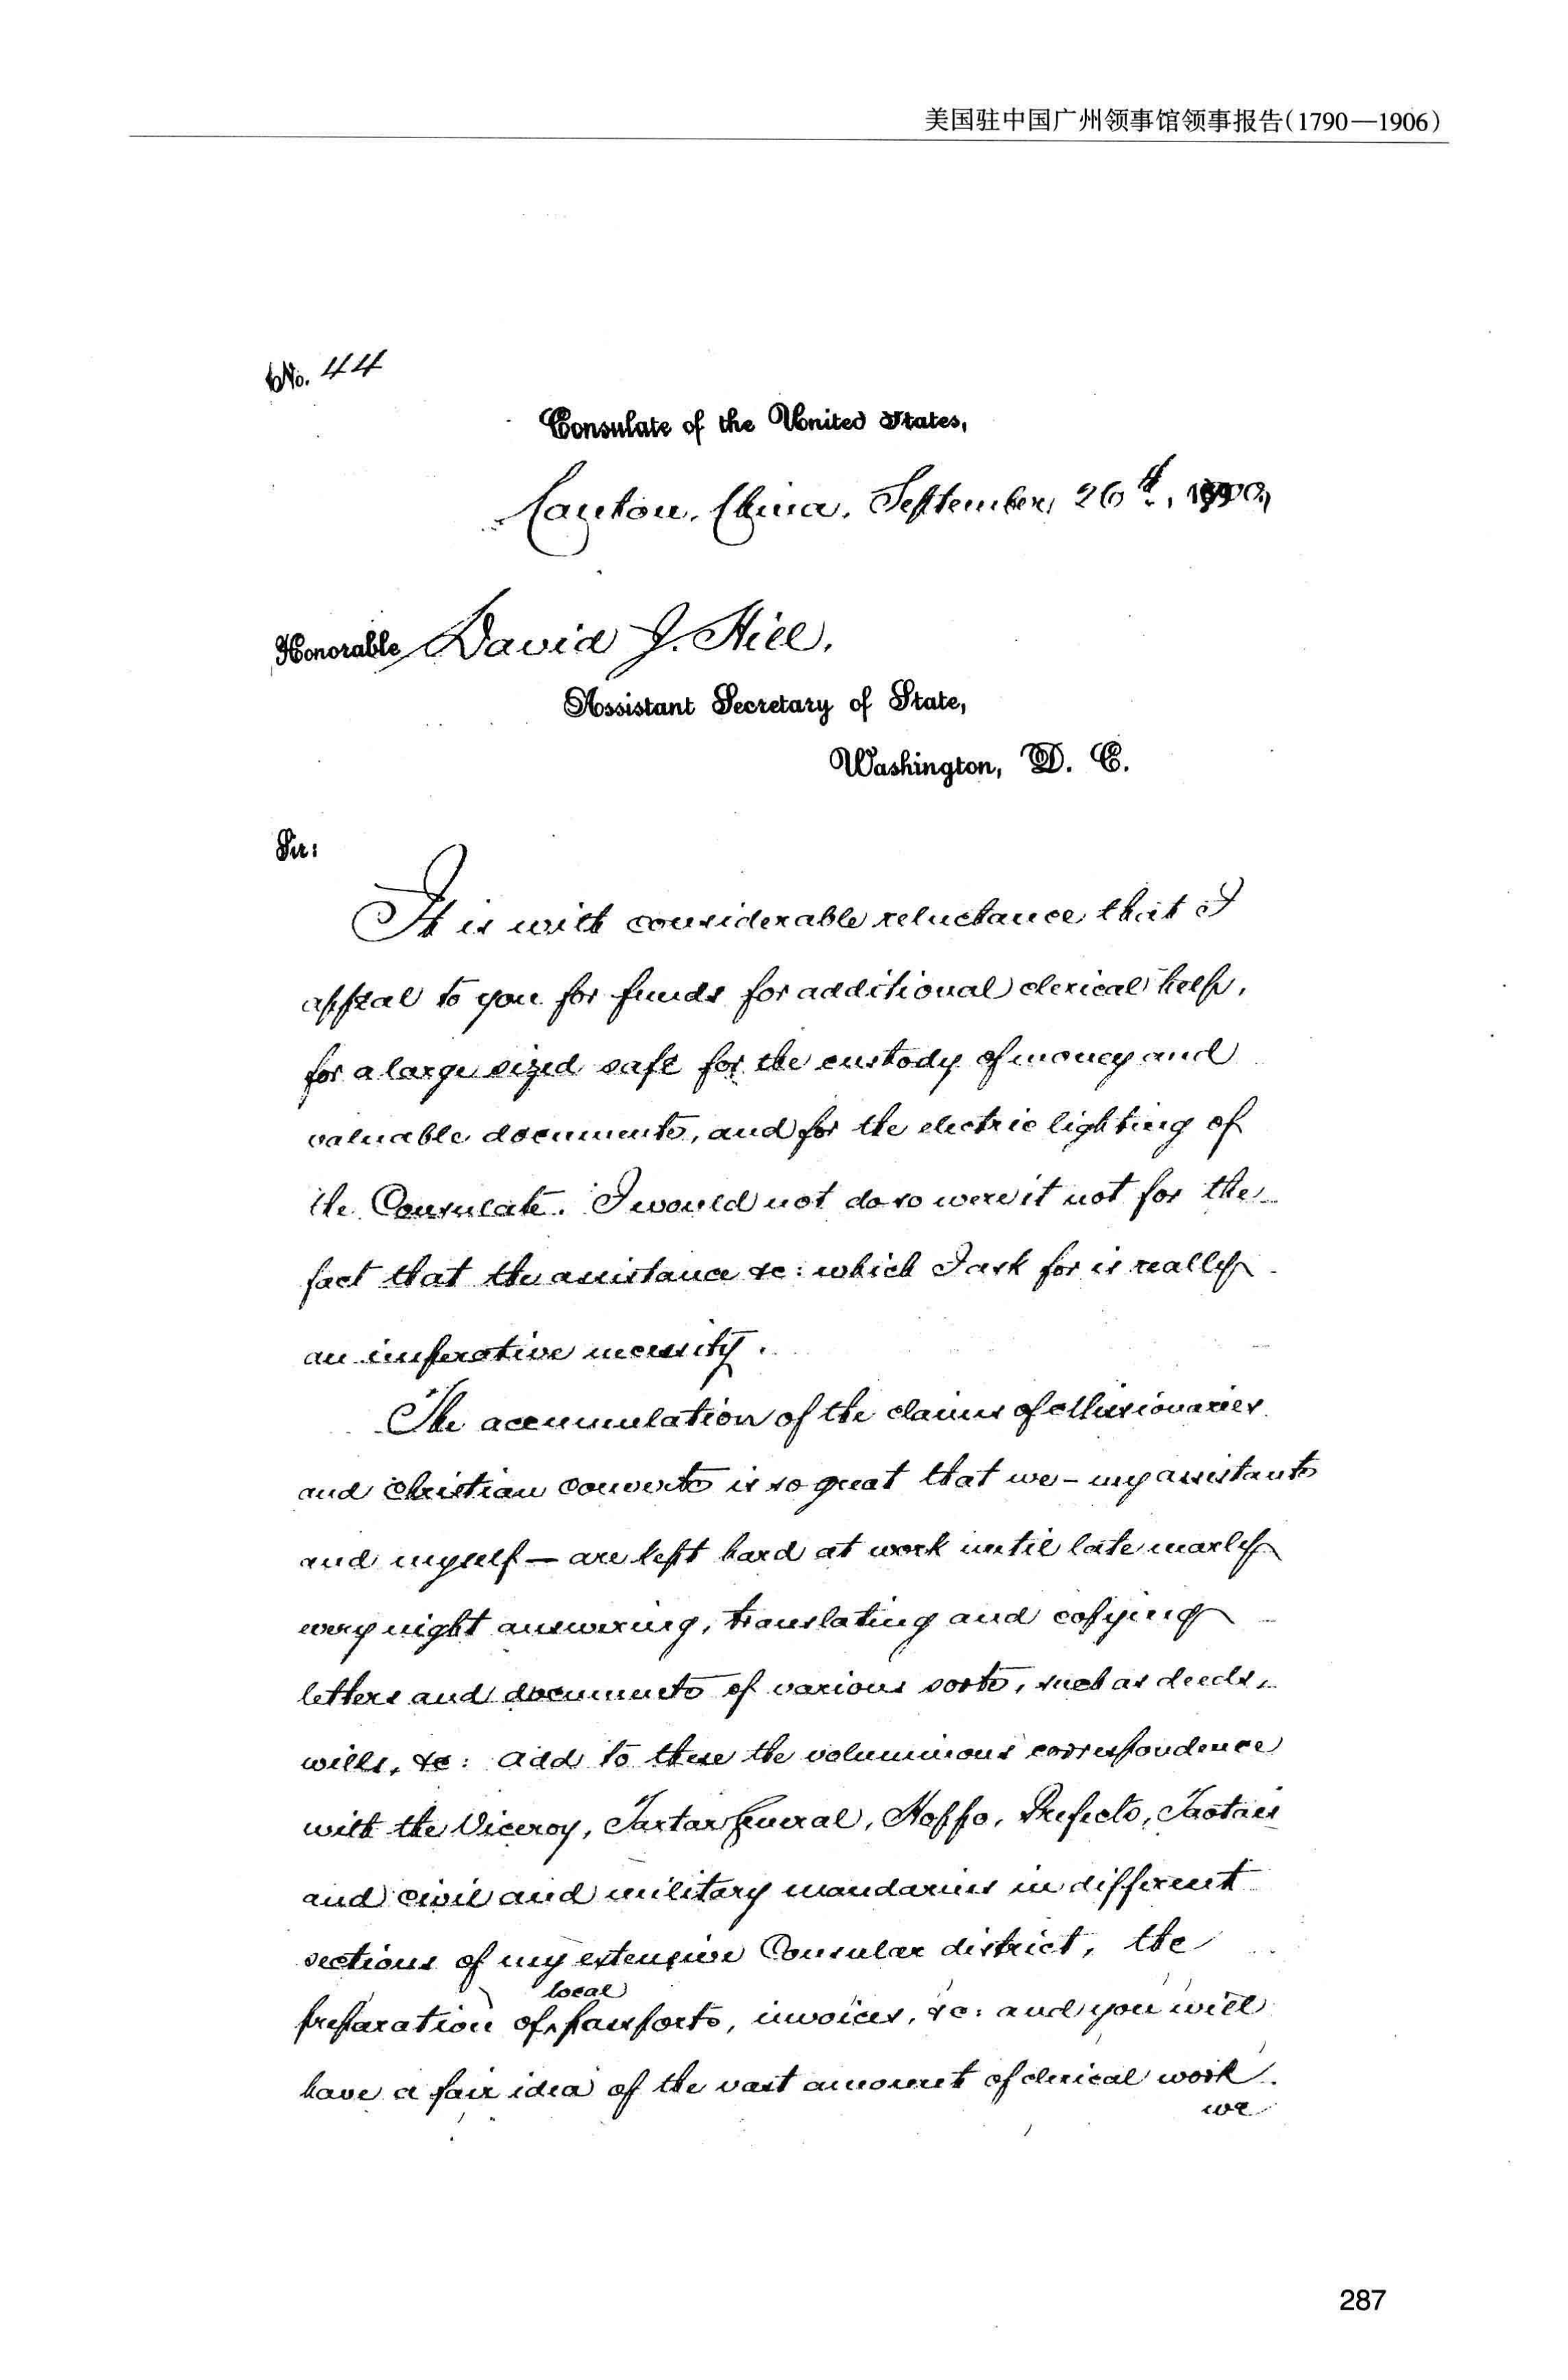 美国驻中国广州领事馆领事报告(1790—1906)
No. 44
Consulate of the United States,
Canton, China, September 26th, 1900,
Honorable David J. Hill,
Assistant Secretary of State,
Washington, D. C.
Sir:
It is with considerable reluctance that I
appeal to you for funds for additional clerical help,
for a large sized safe for the custody of money and
valuable documents, and for the electric lighting of
the Consulate. I would not do so were it not for the
fact that the assistance &c: which I ask for is really
an imperative necessity.
The accumulation of the claims of Missionaries
and Christian converts is so great that we – my assistants
and myself — are kept hard at work until late nearly
every night answering, translating and copying
letters and documents of various sorts, such as deeds,
wills, &c: Add to these the voluminous correspondence
with the Viceroy, Tartar General, Hoppo, Prefects, Taotais
and civil and military mandarins in different
sections of my extensive Consular district, the
local
preparation of passports, invoices, &c: and you will
have a fair idea of the vast amount of clerical work.
we
287